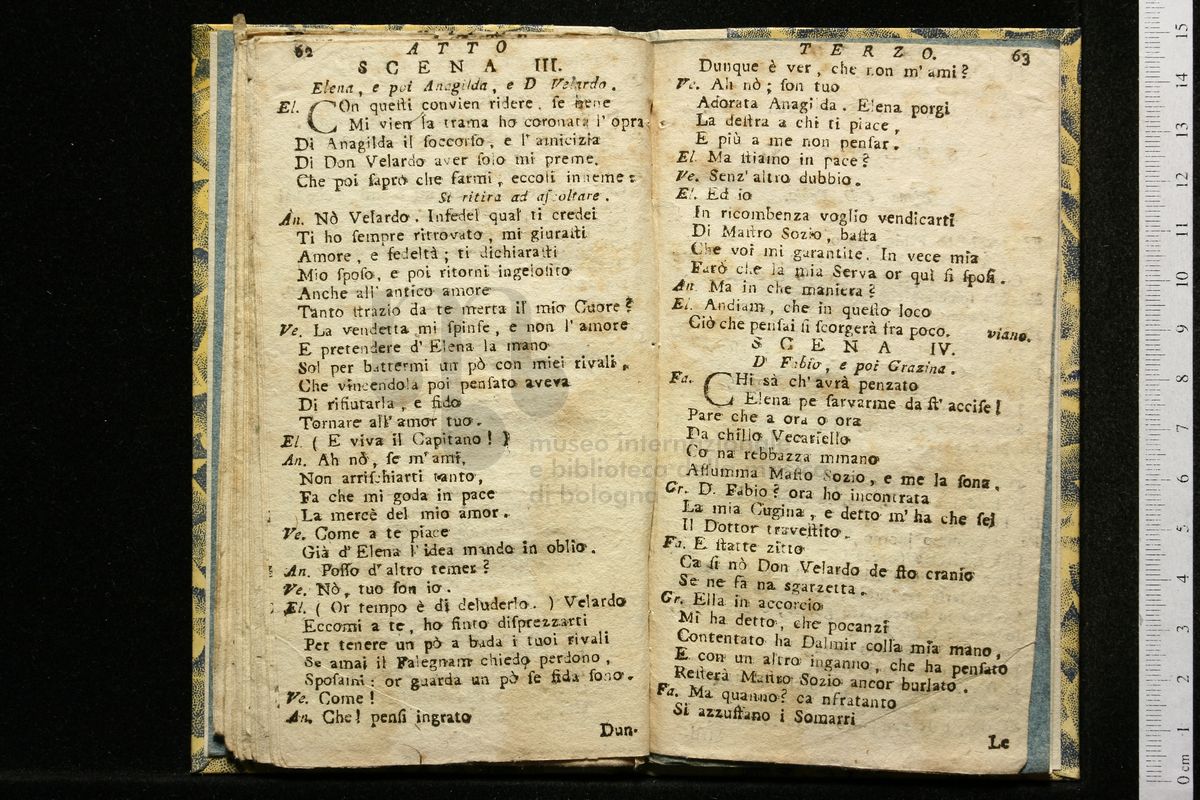 62
ATTO
SCENA III.
Elena, e poi Anagilda, e D Velardo.
El. COn questi convien ridere, se bene
Mi vien la trama ho coronata l'opra.
Di Anagilda il soccorso, e l'amicizia
Di Don Velardo aver solo mi preme.
Che poi saprò che farmi, eccoli insieme:
Si ritira ad ascoltare.
An. Nò Velardo. Infedel qual ti credei
Ti ho sempre ritrovato, mi giurasti
Amore, e fedeltà; ti dichiarasti
Mio sposo, e poi ritorni ingelosito
Anche all'antico amore
Tanto strazio da te merta il mio Cuore?
Ve. La vendetta mi spinse, e non l'amore
E pretendere d'Elena la mano
Sol per battermi un pò con miei rivali,
Che vincendola poi pensato aveva
Di rifiutarla, e fido
Tornare all'amor tuo.
El. (E viva il Capitano!)
An. Ah nò, se m'ami,
Non arrischiarti tanto,
Fa che mi goda in pace
La mercè del mio amor.
Ve. Come a te piace
Già d'Elena l'idea mando in oblio.
An. Posso d'altro temer?
Ve. Nò, tuo son io.
El. (Or tempo è di deluderlo.) Velardo
Eccomi a te, ho finto disprezzarti
Per tenere un pò a bada i tuoi rivali
Se amai il Falegnam chiedo perdono,
Sposami: or guarda un pò se fida sono.
Ve. Come!
An. Che! pensi ingrato
Dun-
TERZO.
63
Dunque è ver, che non m'ami?
Ve. Ah nò; son tuo
Adorata Anagilda. Elena porgi
La destra a chi ti piace,
E più a me non pensar.
El. Ma stiamo in pace?
Ve. Senz'altro dubbio.
El. Ed io
In ricombenza voglio vendicarti
Di Mastro Sozio, basta
Che voi mi garantite. In vece mia
Farò che la mia Serva or quì si sposi.
An. Ma in che maniera?
El. Andiam, che in questo loco
Ciò che pensai si scorgerà fra poco.
viano.
SCENA IV.
D Fabio, e poi Grazina.
Fa. CHi sà ch'avrà penzato
Elena pe sarvarme da st'accise!
Pare che a ora o ora
Da chillo Vecariello
Co na rebbazza mmano
Assumma Masto Sozio, e me la sona.
Gr. D. Fabio? ora ho incontrata
La mia Cugina, e detto m'ha che sei
Il Dottor travestito.
Fa. E statte zitto
Ca si nò Don Velardo de sto cranio
Se ne fa na sgarzetta.
Gr. Ella in accorcio
Mi ha detto, che pocanzi
Contentato ha Dalmir colla mia mano,
E con un altro inganno, che ha pensato
Resterà Mastro Sozio ancor burlato.
Fa. Ma quanno? ca nfratanto
Si azzuffano i Somarri
Le
museo internazionale
e biblioteca della musica
di bologna
0 cm 1 2 3 4 5 6 7 8 9 10 11 12 13 14 15